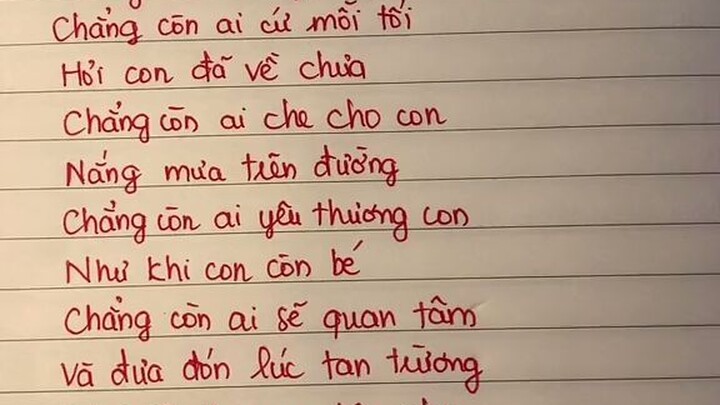 Chẳng còn ai cứ mỗi tối
Hỏi con đã về chưa
Chẳng còn ai che cho con
Nắng mưa trên đường
Chẳng còn ai yêu thương con
Như khi con còn bé
Chẳng còn ai sẽ quan tâm
Và đưa đón lúc tan trường